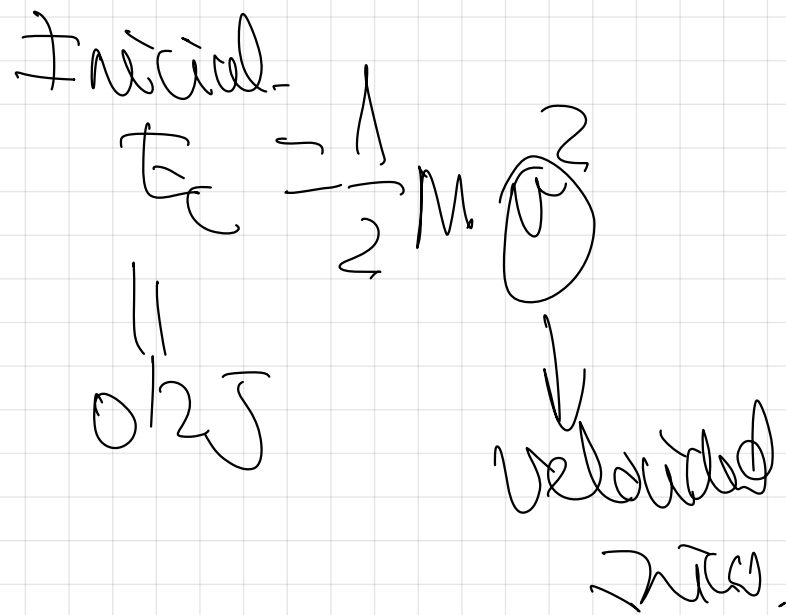 Inicial.
Ec = 1/2 M v²
||
0,2J
velocidad
Inicio.